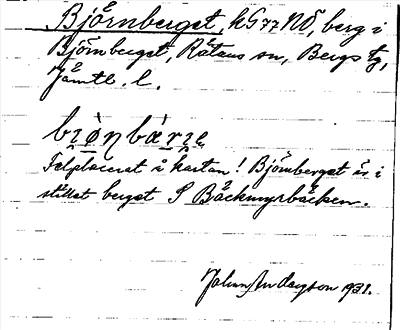 Björnberget, kG 77 NÖ, berg i
Björnberget, Rätans sn, Bergs tg,
Jämtl. l.
bɩønbærɩe
Felplacerat å kartan! Björnberget är i
stället berget S Bäckmyrbäcken.
Johan Anderzson 1931.